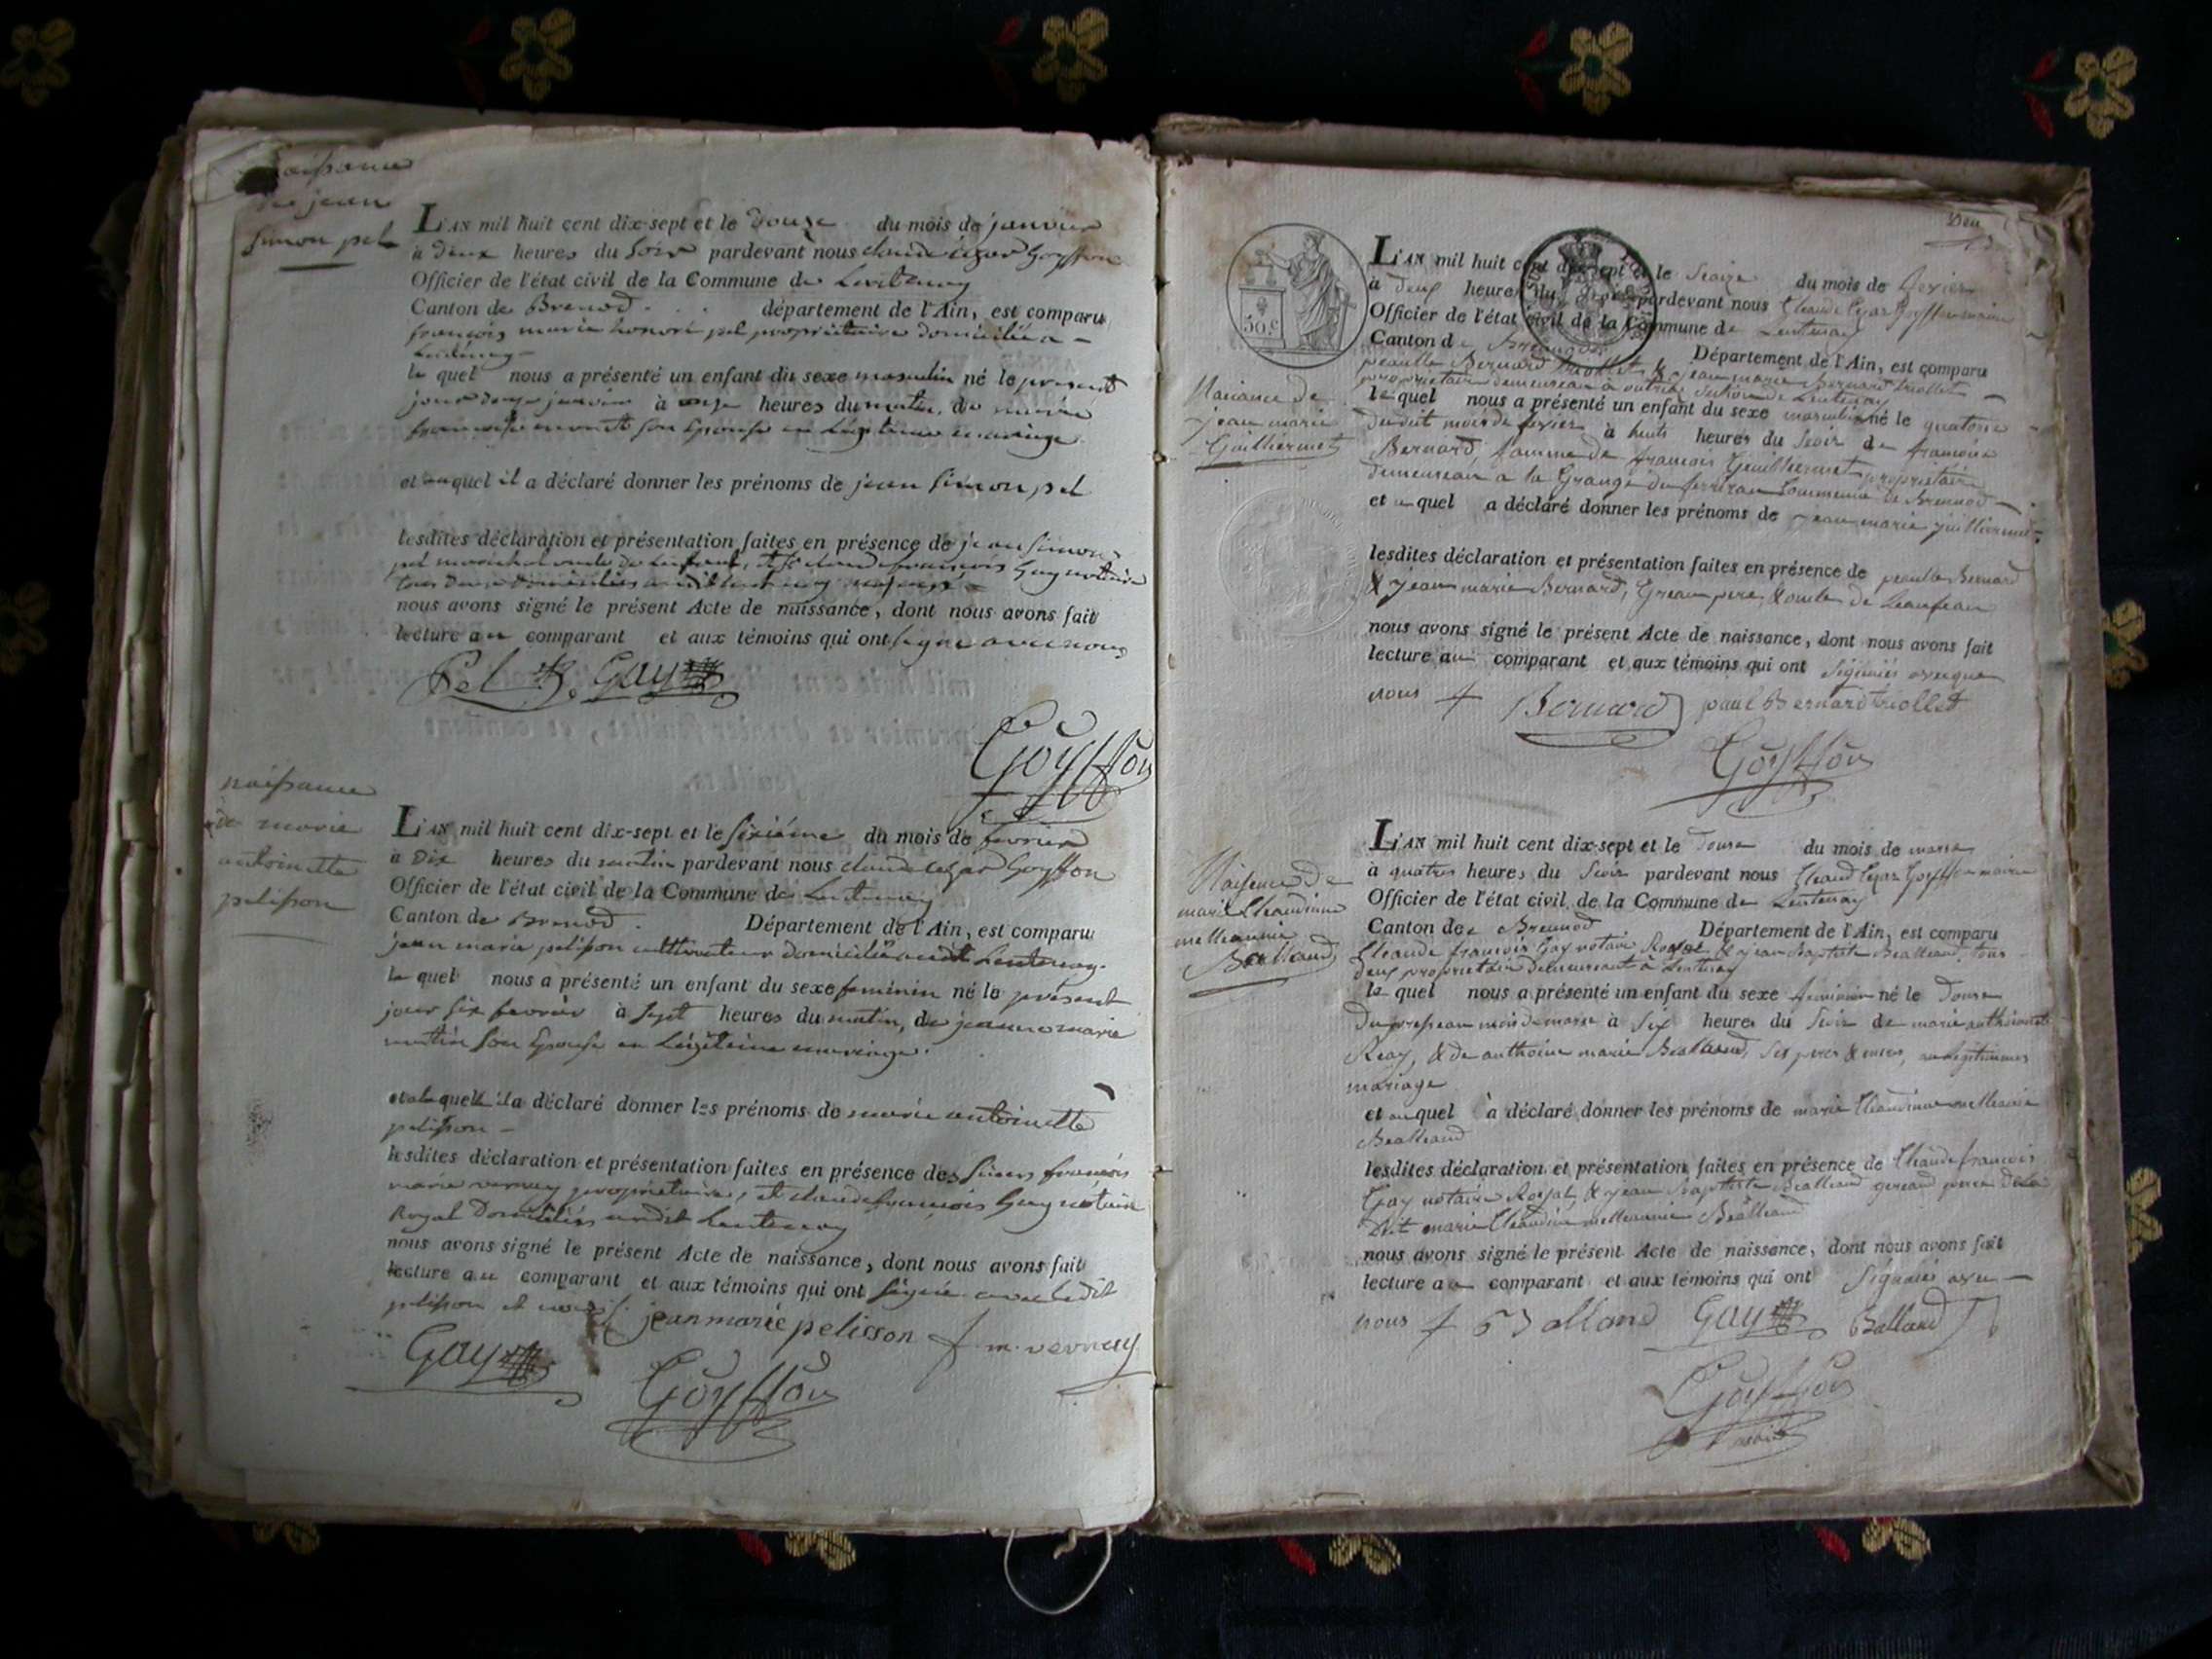 naissance
de jean
simon pel
L'AN mil huit cent dix-sept et le douze du mois de janvier
à deux heures du soir pardevant nous claude cézar Goyffon
Officier de l'état civil de la Commune de Lentenay
Canton de Brenod département de l'Ain, est comparu
françois marie honoré pel propriétaire domicilié a
Lentenay
le quel nous a présenté un enfant du sexe masculin né le présent
jour douze janvier à onze heures du matin, de marie
françoise son épouse en légitime mariage
et auquel il a déclaré donner les prénoms de jean simon pel
lesdites déclaration et présentation faites en présence de jean simon
pel oncle de l'enfant, et claude françois Gay notaire
tous deux domiciliés
nous avons signé le présent Acte de naissance, dont nous avons fait
lecture au comparant et aux témoins qui ont signé avec nous
Pel Gay
Goyffon
naissance
de marie
antoinette
pelisson
L'AN mil huit cent dix-sept et le sixième du mois de fevrier
à dix heures du matin pardevant nous claude cezar Goyffon
Officier de l'état civil de la Commune de Lentenay
Canton de Brenod Département de l'Ain, est comparu
jean marie pelisson cultivateur domicilié audit Lentenay
le quel nous a présenté un enfant du sexe feminin né le présent
jour six fevrier à sept heures du matin, de jeanne marie
son épouse en légitime mariage.
et à laquelle il a déclaré donner les prénoms de marie antoinette
pelisson
lesdites déclaration et présentation faites en présence des sieurs françois
marie vernay propriétaire, et claude françois Gay notaire
Royal Domiciliés audit Lentenay
nous avons signé le présent Acte de naissance, dont nous avons fait
lecture au comparant et aux témoins qui ont signé avec ledit
pelisson et nous jean marie pelisson f. m. vernay
Gay
Goyffon
Deu
50 c
L'AN mil huit cent dix-sept et le seaize du mois de fevrier
à deux heures du soir pardevant nous Cleaude Cezar Goyffon maire
Officier de l'état civil de la Commune de Lentenay
Canton de Département de l'Ain, est comparu
Bernard triollet & jean marie Bernard triollet
propriétaire demeurean à section de Lentenay
Naiance de
jean marie
Guilliermet
le quel nous a présenté un enfant du sexe masculin né le quatorze
dudit mois de fevrier à huits heures du soir de
Bernard, famme de françois Guilliermet propriétaire
demeurean a la Grange du Commune de Brennod
et au quel a déclaré donner les prénoms de jean marie guilliermet
lesdites déclaration et présentation faites en présence de Bernard
& jean marie Bernard, Grean pere, & oncle de Leanfean
nous avons signé le présent Acte de naissance, dont nous avons fait
lecture au comparant et aux témoins qui ont
nous Bernard paul Bernard triollet
Goyffon
Naisence de
marie Cleaudine
Balland
L'AN mil huit cent dix-sept et le douse du mois de marse
à quatres heures du soir pardevant nous Cleaud Cezar Goyffon maire
Officier de l'état civil de la Commune de Lentenay
Canton de Brennod Département de l'Ain, est comparu
Cleaude françois Gay notaire Royal & jean Baptiste Bealleand, tous
deux propriétaire demeureant à Lentenay
le quel nous a présenté un enfant du sexe feminin né le douse
du presean mois de marse à six heures du soir de marie
Reay, & de anthoine marie Bealleand, ses peres & meres, an legitimmes
mariage
et au quel a déclaré donner les prénoms de marie Cleaudine
Bealleand
lesdites déclaration et présentation faites en présence de Cleaude francois
Gay notaire Royal, & jean Baptiste Bealleand greand pere de la
Dit marie Cleaudine Bealleand
nous avons signé le présent Acte de naissance, dont nous avons fait
lecture au comparant et aux témoins qui ont
nous Balland Gay Balland
Goyffon
maire